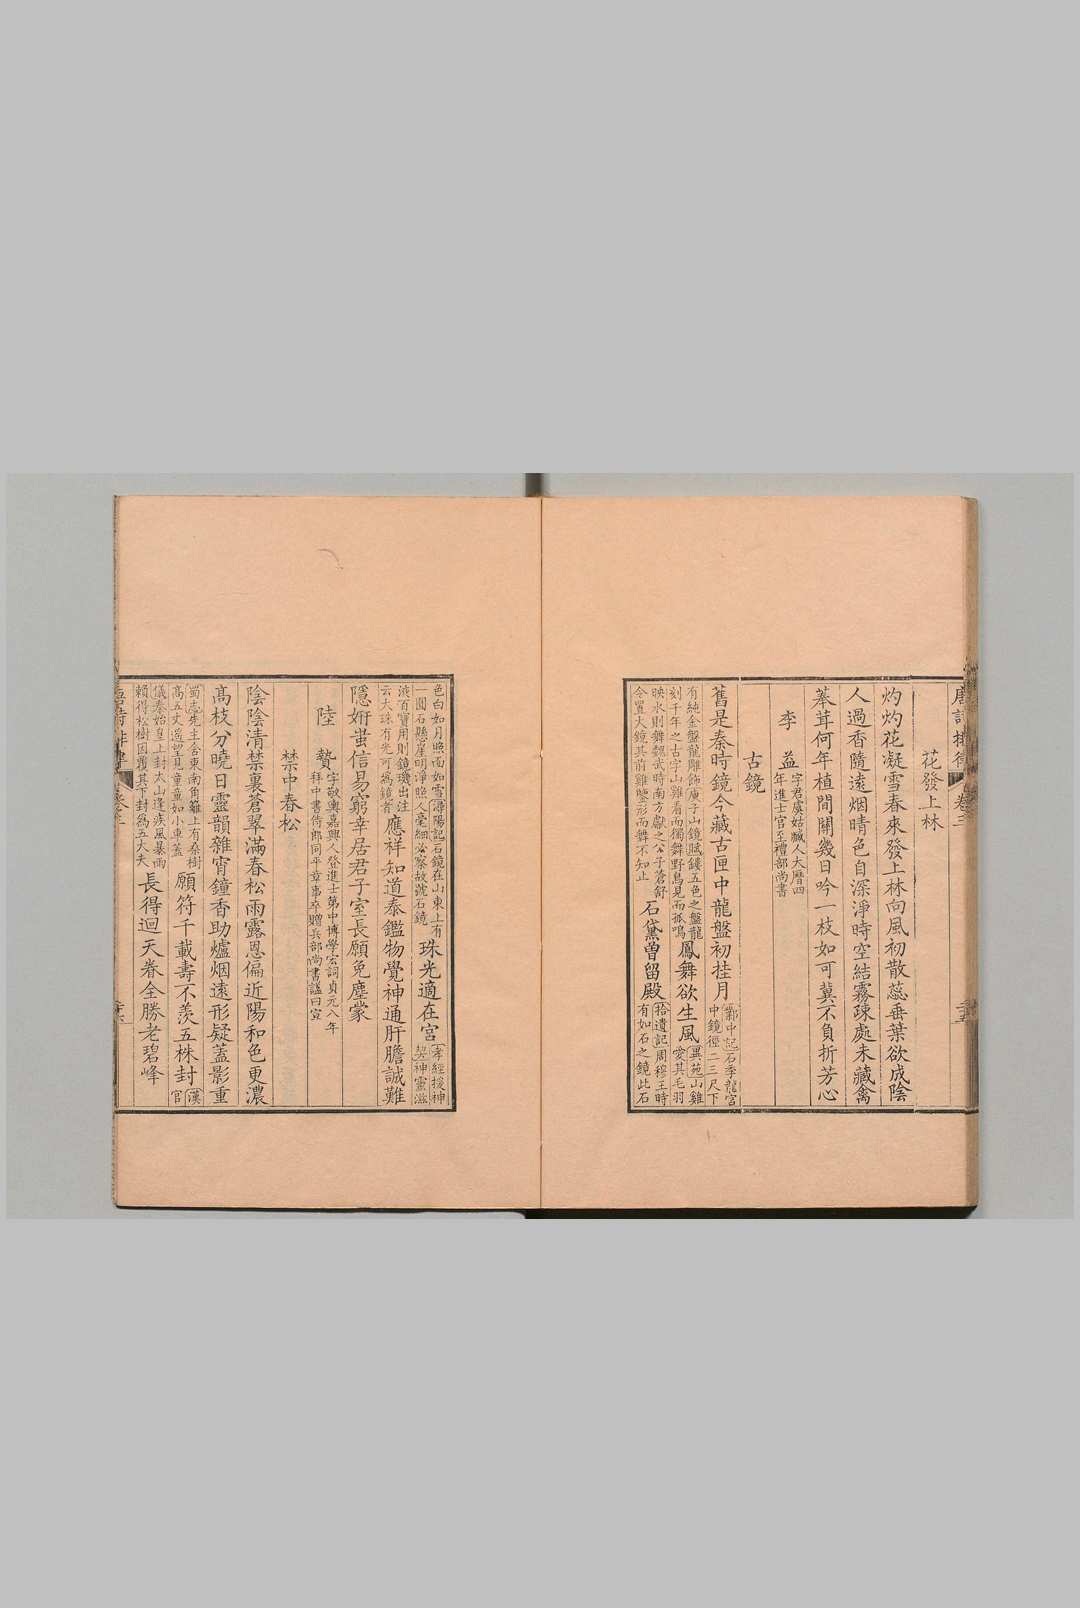 唐詩排律 卷三
花發上林
灼灼花凝雪春來發上林向風初散蕊垂葉欲成陰
人過香隨遠烟晴色自深淨時空結霧疎處未藏禽
菶茸何年植間關幾日吟一枝如可冀不負折芳心
李益 字君虞姑臧人大曆四年進士官至禮部尚書
古鏡
舊是秦時鏡今藏古匣中龍盤初挂月 鄴中記石季龍宮中鏡徑二三尺下
有純金盤龍雕飾庾子山鏡賦鏤五色之盤龍刻千年之古字 鳳舞欲生風 異苑山雞愛其毛羽
山雞看而獨舞野鳥見而孤鳴
映水則舞魏武時南方獻之公子蒼舒令置大鏡其前雞鑒形而舞不知止 石黛曾留殿 拾遺記周穆王時有如石之鏡此石
色白如月照面如雪潯陽記石鏡在山東上有一圓石懸崖明淨照人毫細必察故號石鏡 珠光適在宮 孝經援神契神靈滋
液百寶用則鏡璣出注云大珠有光可為鏡者 應祥知道泰鑑物覺神通肝膽誠難
隱妍蚩信易窮幸居君子室長願免塵蒙
陸贄 字敬輿嘉興人登進士第中博學宏詞貞元八年拜中書侍郎同平章事卒贈兵部尚書諡曰宣
禁中春松
陰陰清禁裏蒼翠滿春松雨露恩偏近陽和色更濃
高枝分曉日靈韻雜宵鐘香助爐烟遠形疑蓋影重
蜀志先主舍東南角籬上有桑樹高五丈遙望見童童如小車蓋 願符千載壽不羨五株封 漢官
儀秦始皇上封太山逢疾風暴雨賴得松樹因覆其下封為五大夫 長得迴天眷全勝老碧峰